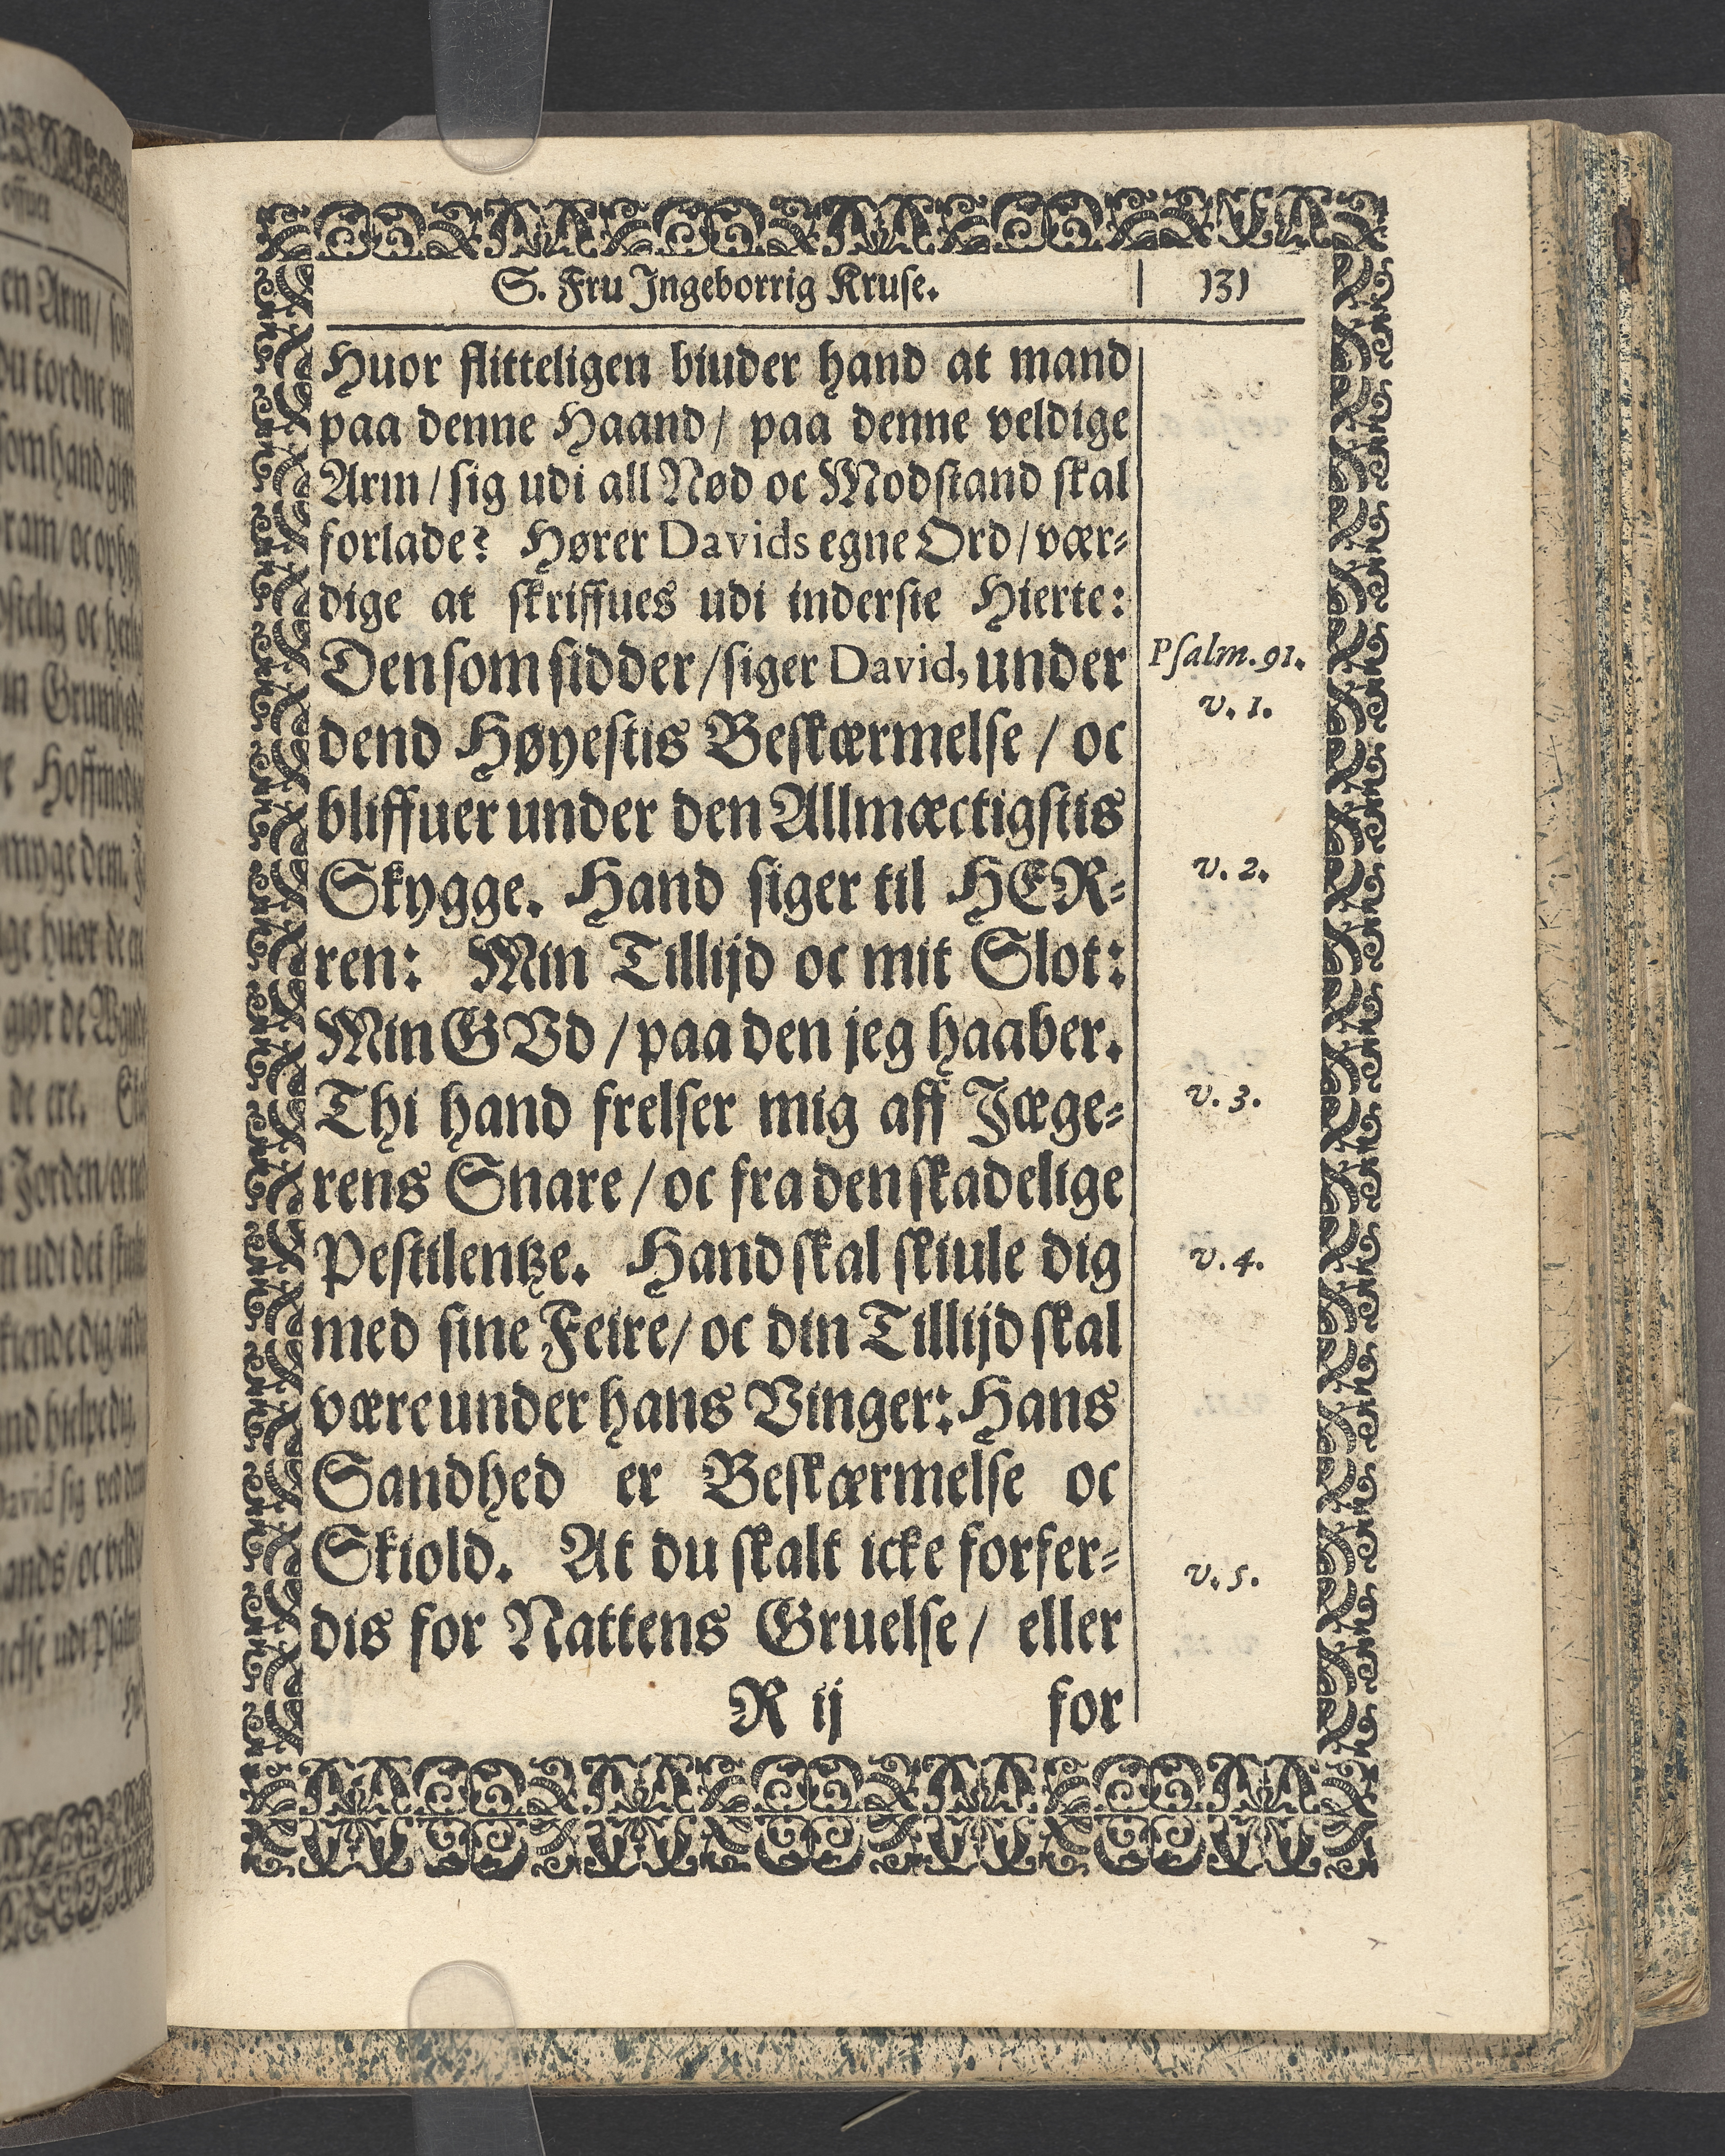 S. Fru Jngeborrig Kruse. 131
Huor flitteligen biuder hand at mand
paa denne Haand/ paa denne veldige
Arm/ sig udi all Nød oc Modstand skal
forlade? Hører Davids egne Ord/ vær⸗
dige at skriffues udi inderste Hierte:
Den som sidder/ siger David, under
Psalm. 91.
v. 1.
dend Høyestis Beskærmelse/ oc
bliffuer under den Allmæctigstis
Skygge. Hand siger til HER⸗
v. 2.
ren: Min Tillijd oc mit Slot:
Min GVd/ paa den jeg haaber.
Thi hand frelser mig aff Jæge⸗
v. 3.
rens Snare/ oc fra den skadelige
Pestilentze. Hand skal skiule dig
v. 4.
med sine Feire/ oc din Tillijd skal
være under hans Vinger: Hans
Sandhed er Beskærmelse oc
Skiold. At du skalt icke forfer⸗
v. 5.
dis for Nattens Gruelse/ eller
R ij for